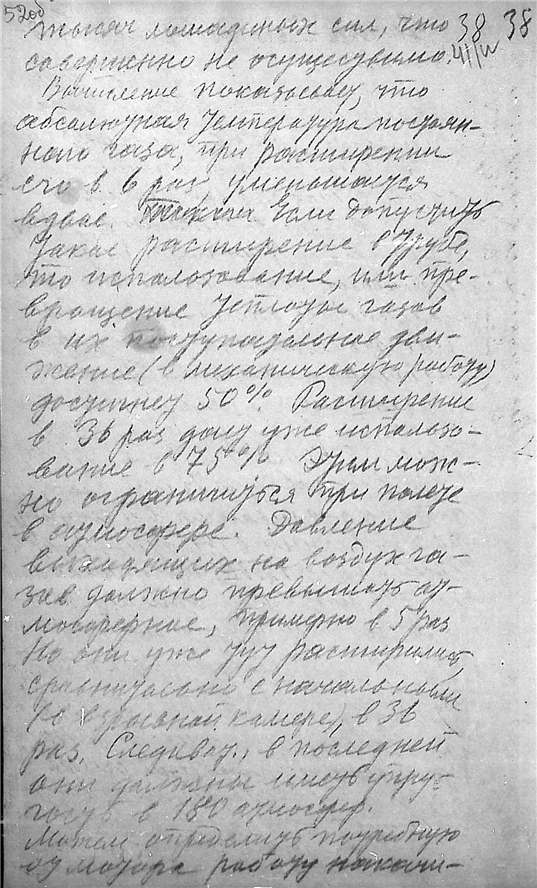 52об
38 38
41/IV
тысяч лошадиных сил, что
совершенно не осуществимо.
Вычисление показывает, что
абсолютная температура постоян-
ного газа, при расширении
его в 6 раз уменьшается
вдвое. Если допустить
такое расширение в трубе,
то использование, или пре-
вращение теплоты газов
в их поступательное дви-
жение (в механическую работу)
достигнет 50%. Расширение
в 36 раз дает уже использо-
вание в 75%. Этим мож-
но ограничиться при полете
в атмосфере. Давление
выходящих на воздух га-
зов должно превышать ат-
мосферное, примерно в 5 раз
Но они уже тут расширились,
сравнительно с начальным
(во взрывной камере), в 36
раз. Следоват., в последней
они должны иметь упру-
гость в 180 атмосфер.
Можем определить потребную
от мотора работу накачи-